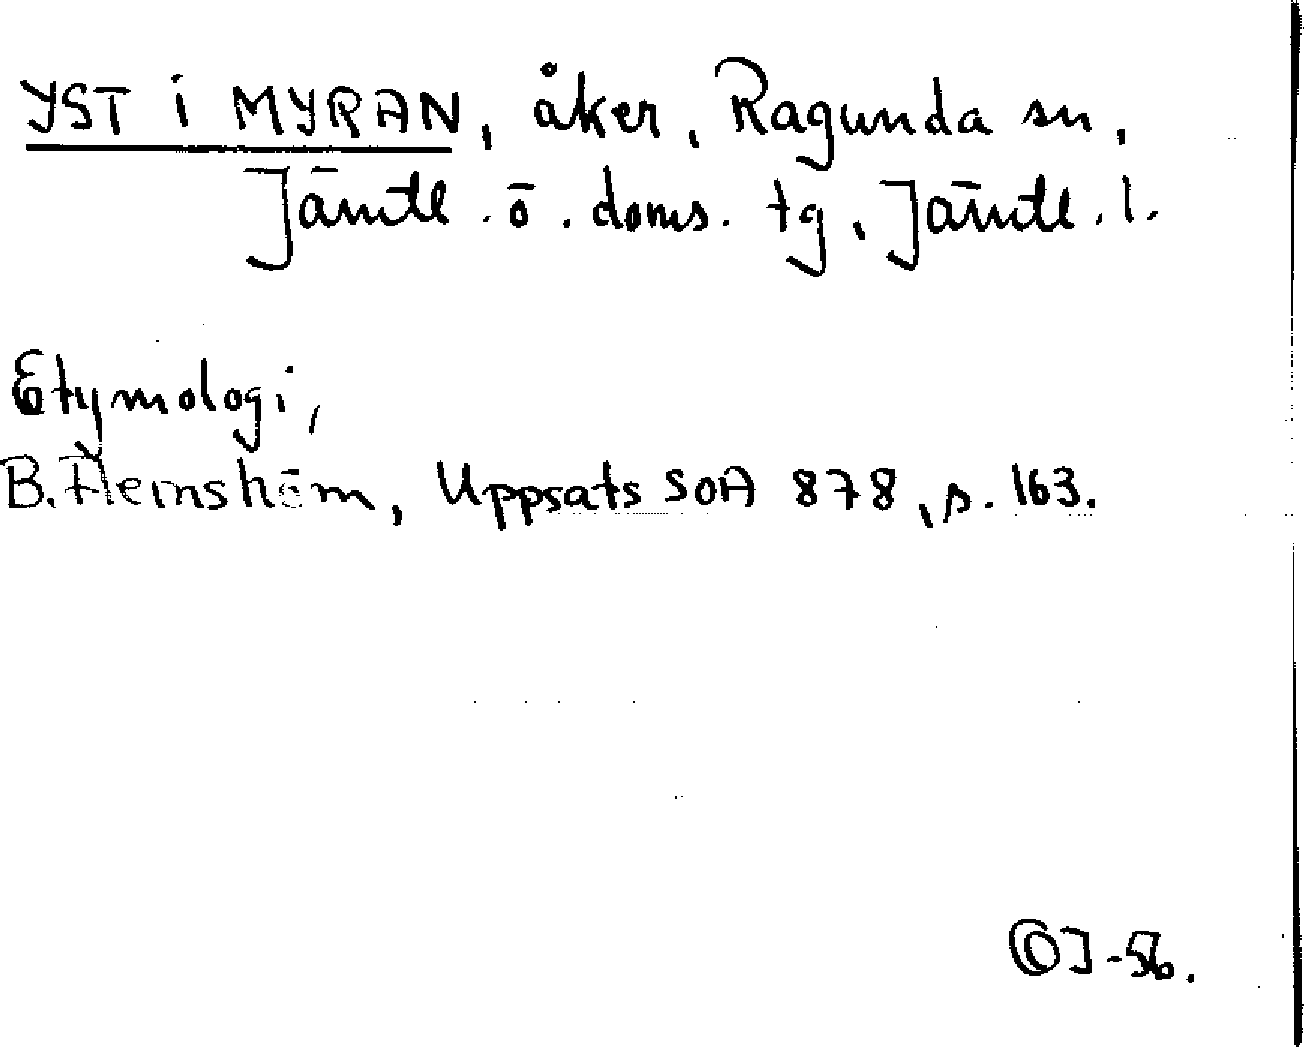 YST i MYRAN, åker, Ragunda sn,
Jämtl. ö. doms. tg, Jämtl. l.
Etymologi,
B. Flemström, Uppsats SOA 878, s. 163.
J-56.